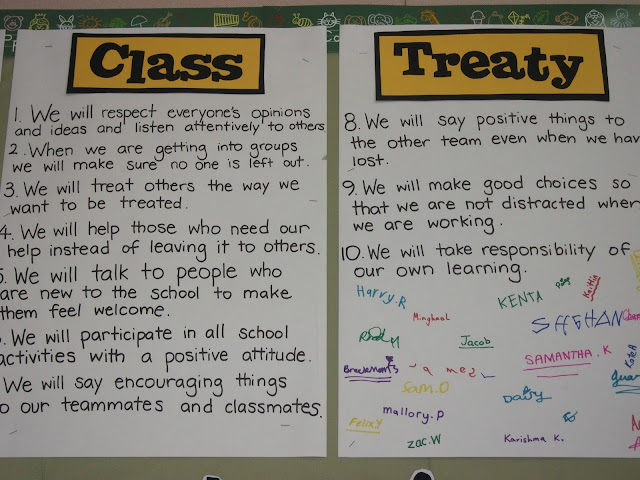 Class
1. We will respect everyone's opinions
and ideas and listen attentively to others
2. When we are getting into groups
we will make sure no one is left out.
3. We will treat others the way we
want to be treated.
4. We will help those who need our
help instead of leaving it to others.
5. We will talk to people who
are new to the school to make
them feel welcome.
We will participate in all school
activities with a positive attitude.
We will say encouraging things
to our teammates and classmates.
Treaty
8. We will say positive things to
the other team even when we hav
lost.
9. We will make good choices so
that we are not distracted when
we are working.
10. We will take responsibility of
our own learning.
Harry.R
Minghao
KENTA
Kaitlin
Jacob
SAMANTHA.K
Kate A
Sam.O
Daisy
mallory.p
Felix Y
zac.W
Karishma K.